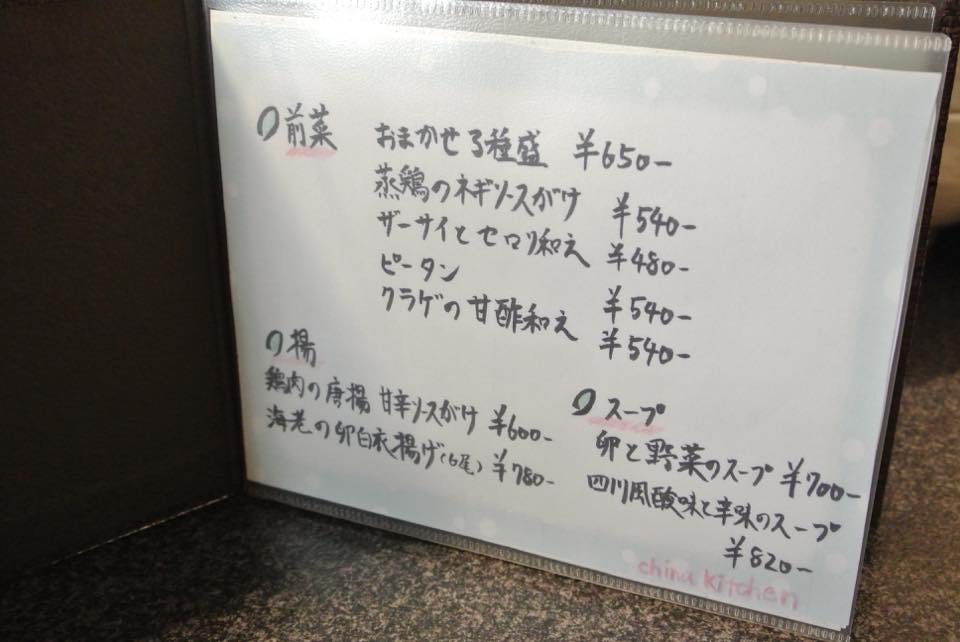 前菜
おまかせ3種盛 ¥650-
蒸鶏のネギソースがけ ¥540-
ザーサイとセロリ和え ¥480-
ピータン ¥540-
クラゲの甘酢和え ¥540-
揚
鶏肉の唐揚 甘辛ソースがけ ¥600-
海老の卵白衣揚げ(6尾) ¥780-
スープ
卵と野菜のスープ ¥700-
四川風酸味と辛味のスープ
¥820-
china kitchen